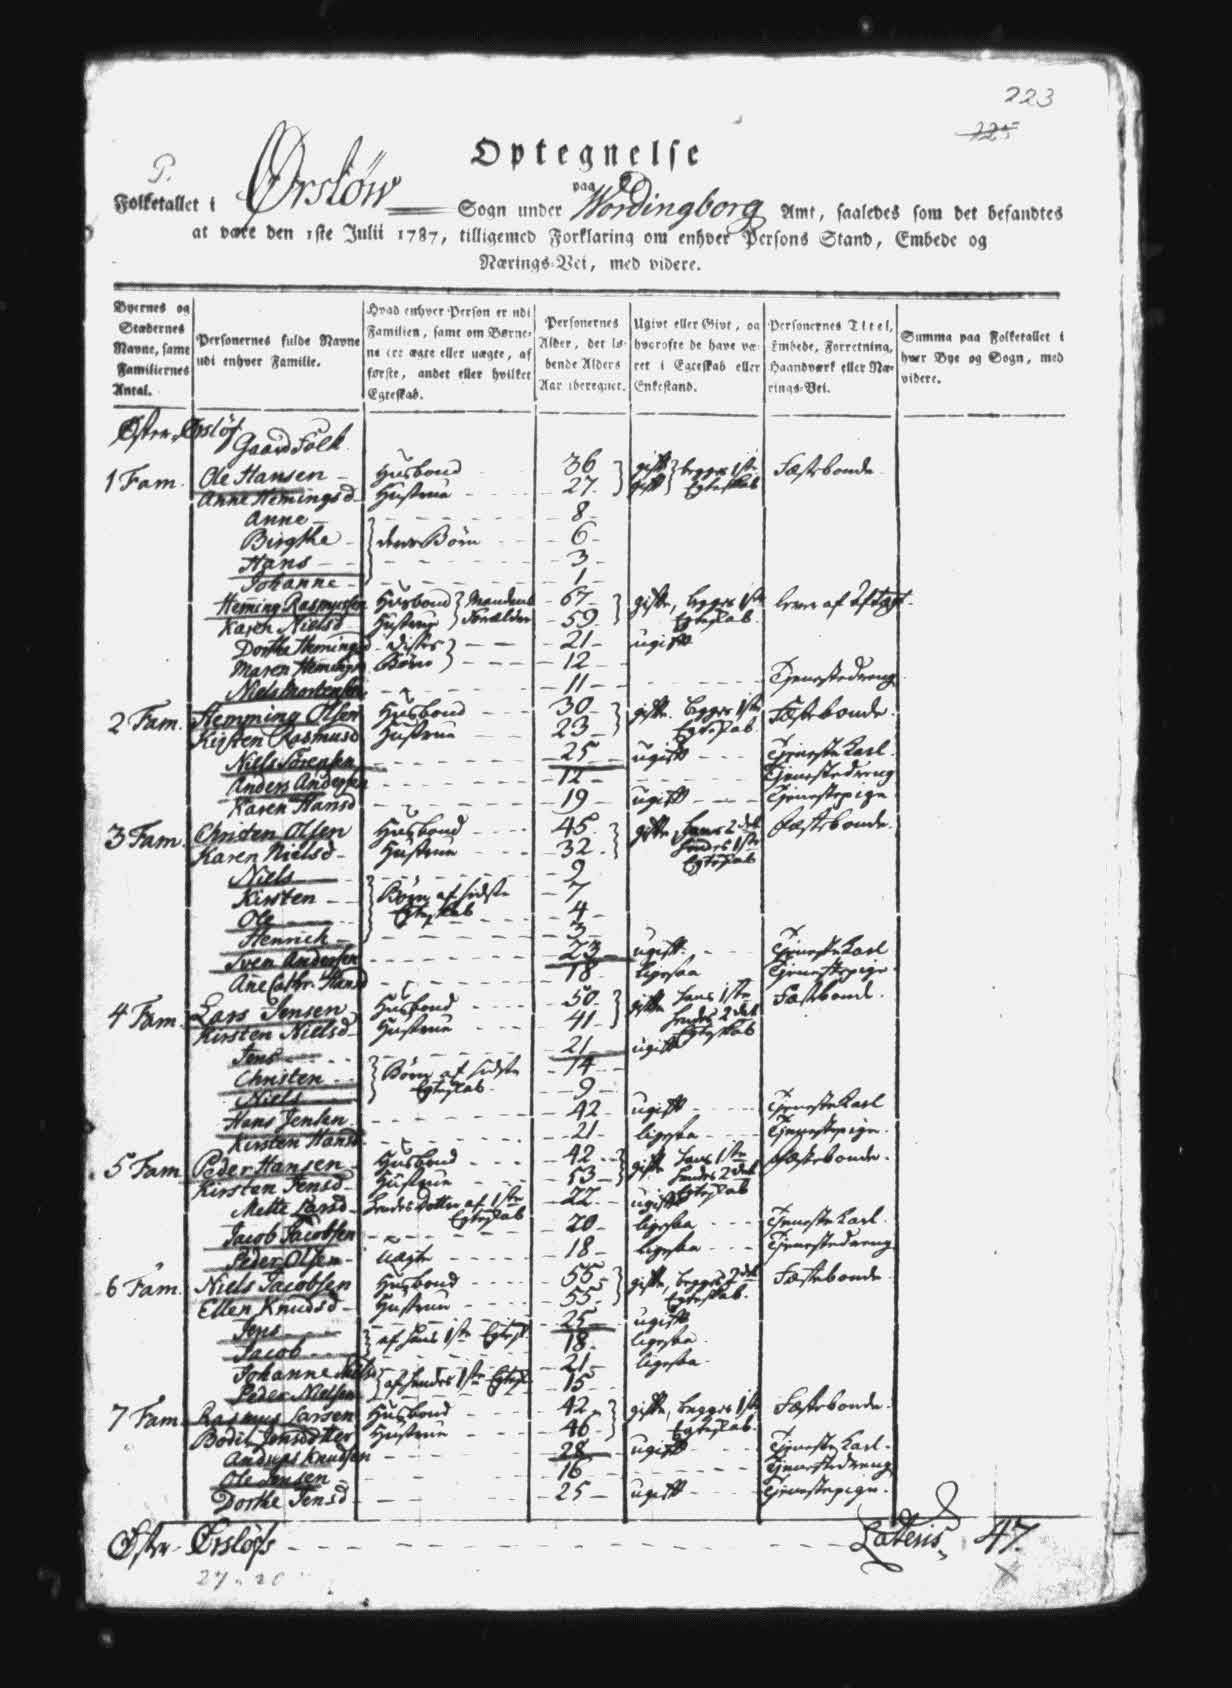 223
225
Optegnelse
paa
Folketallet i Ørsløw Sogn under Wordingborg Amt, saaledes som det befandtes
at være den 1ste Julii 1787, tilligemed Forklaring om enhver Persons Stand, Embede og
Nærings-Vei, med videre.
Byernes og Stædernes Navne, samt Familiernes Antal.
Personernes fulde Navne udi enhver Familie.
Hvad enhver Person er udi Familien, samt om Børnene ere ægte eller uægte, af første, andet eller hvilket Egteskab.
Personernes Alder, det løbende Alders Aar iberegnet.
Ugivt eller Givt, og hvorofte de have været i Egteskab eller Enkestand.
Personernes Titel, Embede, Forretning, Haandværk eller Nærings-Vei.
Summa paa Folketallet i hver Bye og Sogn, med videre.
Øster-Ørsløf
Gaard Folk
1 Fam. Ole Hansen Husbond 36 gift begges 1ste Fæstebonde
Anne Hemingsd Hustrue 27 gift Egteskab
Anne 8
Birgthe deres Børn 6
Hans 3
Johanne 1
Heming Rasmussen Husbond Mandens 67 gifte, begges 1ste lever af Aftægt
Karen Nielsd Hustrue Forælder 59 Egteskab
Dorthe Hemingsd disses 21 ugift
Maren Hemingsd Børn 12
Niels Mortensen 11 Tjenestedreng
2 Fam. Hemming Olsen Husbond 30 gifte begges 1ste Fæstebonde
Kirsten Rasmusd Hustrue 23 Egteskab
Niels Sørensen 25 ugift Tjeneste Karl
Anders Andersen 12 Tjenestedreng
Karen Hansd 19 ugift Tjenestepige
3 Fam. Christen Olsen Husbond 45 gifte, hans 2det Fæstebonde
Karen Nielsd Hustrue 32 hendes 1ste Egteskab
Niels 9
Kirsten Børn af sidste 7
Ole Egteskab 4
Henrich 3
Sven Andersen 23 ugift Tjeneste Karl
Ane Cathr. Hansd 18 ligesaa Tjenestepige
4 Fam. Lars Jensen Husbond 50 gifte hans 1ste Fæstebonde
Kirsten Nielsd Hustrue 41 hendes 2det Egteskab
Jens 21 ugift
Christen Børn af sidste 14
Niels Egteskab 9
Hans Jensen 42 ugift Tjeneste Karl
Kirsten Hansd 21 ligesaa Tjenestepige
5 Fam Peder Hansen Husbond 42 gifte hans 1ste Fæstebonde
Kirsten Jensd Hustrue 53 hendes 2det Egteskab
Mette Larsd hendes Datter af 1ste Egteskab 22 ugift
Jacob Jacobsen 20 ligesaa Tjeneste Karl
Peder Olsen uægte 18 ligesaa Tjenestedreng
6 Fam. Niels Jacobsen Husbond 55 gifte, begges 2det Fæstebonde
Ellen Knudsd Hustrue 55 Egteskab
Jens af hans 1ste Egtesk 25 ugift
Jacob 18 ligesaa
Johanne Nielsd af hendes 1ste Egtesk 21 ligesaa
Peder Nielsen 15
7 Fam. Rasmus Larsen Husbond 42 gifte, begges 1ste Fæstebonde
Bodil Jensdotter Hustrue 46 Egteskab
Anders Knudsen 28 ugift Tjeneste Karl
Ole Jensen 16 Tjenestedreng
Dorthe Jensd 25 ugift Tjenestepige
Øster-Ørsløfs Lateris 47.